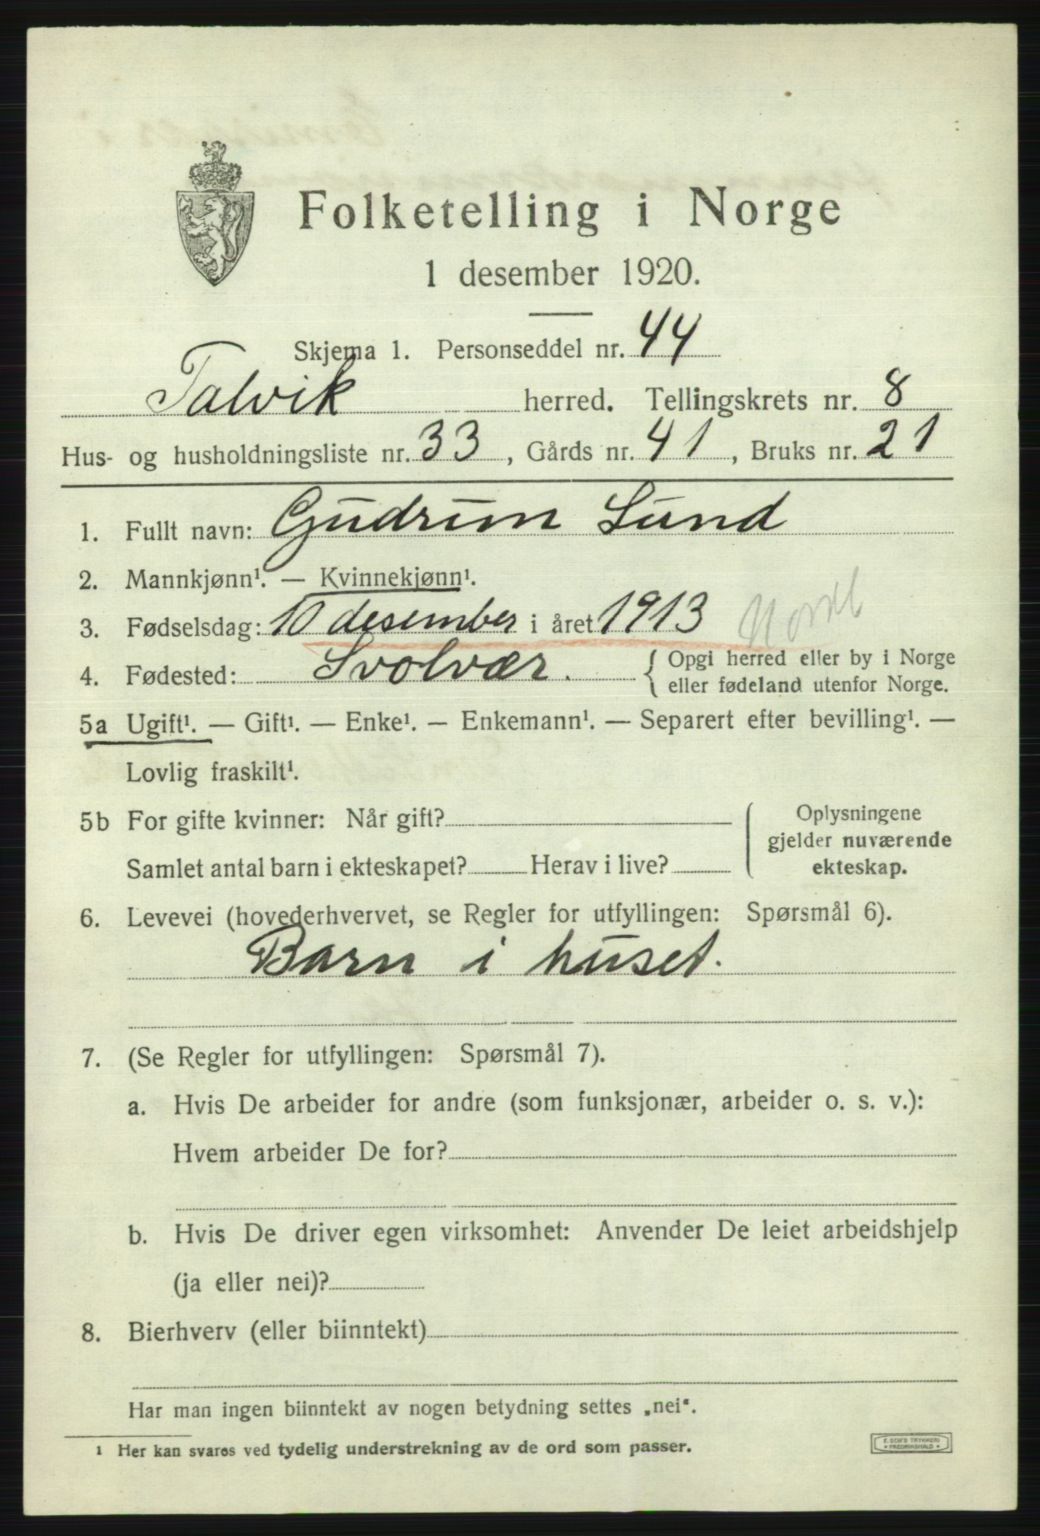 Folketelling i Norge
1 desember 1920.
Skjema 1. Personseddel nr. 44
Talvik herred. Tellingskrets nr. 8
Hus- og husholdningsliste nr. 33, Gårds nr. 41, Bruks nr. 21
1. Fullt navn: Gudrun Lund
2. Mannkjønn¹. — Kvinnekjønn¹.
3. Fødselsdag: 10 desember i året 1913
4. Fødested: Svolvær. { Opgi herred eller by i Norge
eller fødeland utenfor Norge.
5a Ugift¹. — Gift¹. — Enke¹. — Enkemann¹. — Separert efter bevilling¹. —
Lovlig fraskilt¹.
5b For gifte kvinner: Når gift?
Samlet antal barn i ekteskapet? Herav i live?
Oplysningene
gjelder nuværende
ekteskap.
6. Levevei (hovederhvervet, se Regler for utfyllingen: Spørsmål 6).
Barn i huset.
7. (Se Regler for utfyllingen: Spørsmål 7).
a. Hvis De arbeider for andre (som funksjonær, arbeider o. s. v.):
Hvem arbeider De for?
b. Hvis De driver egen virksomhet: Anvender De leiet arbeidshjelp
(ja eller nei)?
8. Bierhverv (eller biinntekt)
Har man ingen biinntekt av nogen betydning settes „nei".
¹ Her kan svares ved tydelig understrekning av de ord som passer.